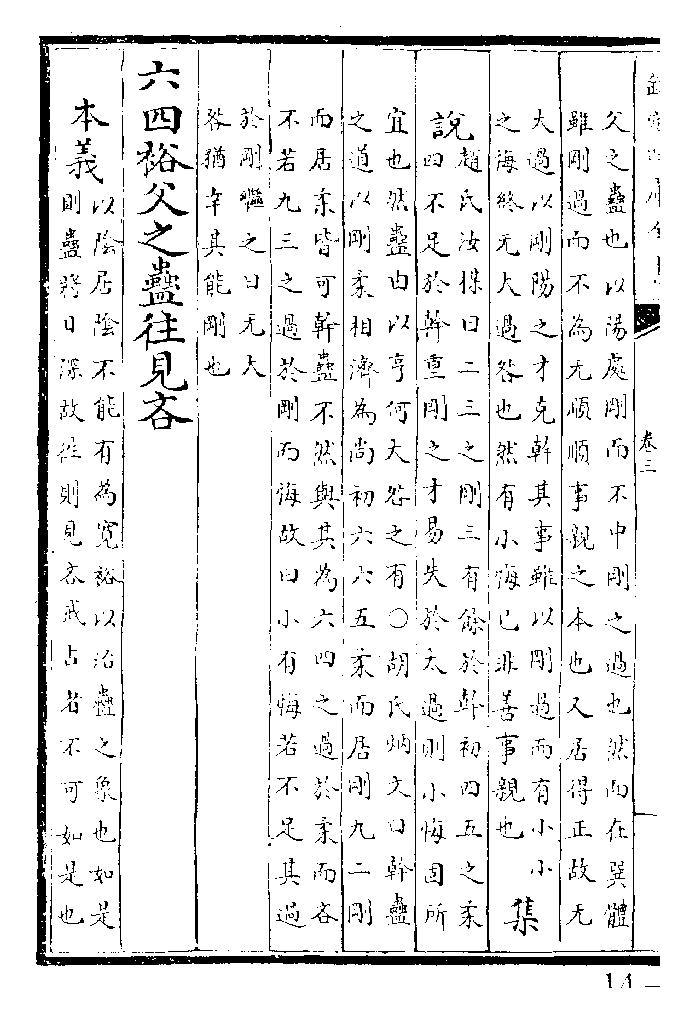 欽定四庫全書
卷三
父之蠱也以陽處剛而不中剛之過也然而在巽體
雖剛過而不為无順順事親之本也又居得正故无
大過以剛陽之才克幹其事雖以剛過而有小小
之悔終无大過咎也然有小悔已非善事親也
集
說
趙氏汝楳曰二三之剛三有餘於幹初四五之柔
四不足於幹重剛之才易失於太過則小悔固所
宜也然蠱由以亨何大咎之有○胡氏炳文曰幹蠱
之道以剛柔相濟為尚初六六五柔而居剛九二剛
而居柔皆可幹蠱不然與其為六四之過於柔而吝
不若九三之過於剛而悔故曰小有悔若不足其過
於剛繼之曰无大
咎猶幸其能剛也
六四裕父之蠱往見吝
本義
以陰居陰不能有為寬裕以治蠱之象也如是
則蠱將日深故往則見吝戒占者不可如是也
14